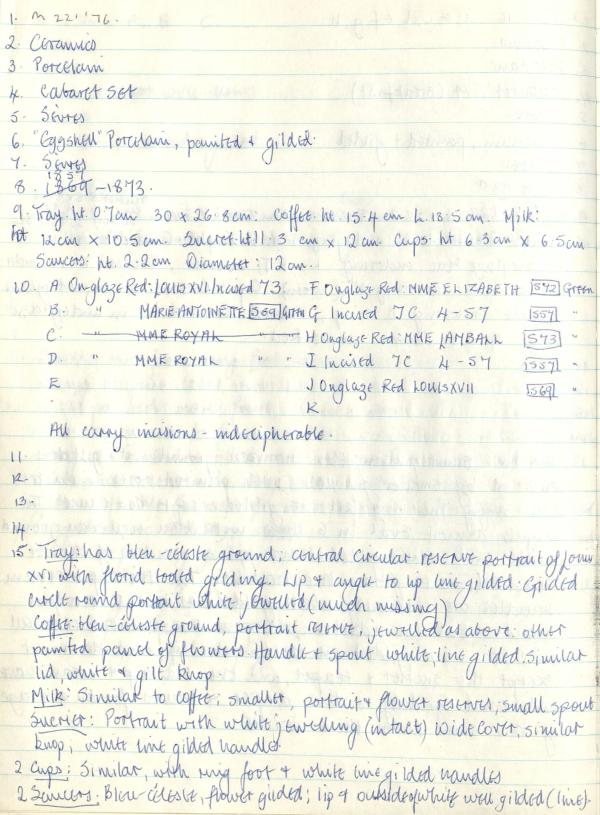 1. M 221 '76.
2. Ceramics
3. Porcelain
4. Cabaret Set
5. Sèvres
6. "Eggshell" Porcelain, painted & gilded.
7. Sèvres
1857
8. 1869 - 1873.
9. Tray. ht. 0.7cm 30 x 26.8cm. Coffee. ht. 15.4 cm L. 18.5 cm. Milk:
ht 12cm x 10.5cm. Sucrer. ht 11.3 cm x 12cm Cups. ht 6.3cm x 6.5cm
Saucers: ht. 2.2cm Diameter: 12cm.
10. A Onglaze Red: LOUIS XVI. Incised 73. F Onglaze Red: MME ELIZABETH S72 Green
B. " MARIE ANTOINETTE S69 Green G Incised JC 4-57 S57 "
C. " MME ROYAL " " H Onglaze Red: MME LAMBALL S73 "
D. " MME ROYAL " " I Incised JC 4-57 S57 "
E J Onglaze Red LOUIS XVII S69 "
K
All carry incisions - indecipherable.
11.
12.
13.
14
15 Tray: has bleu-céleste ground; central circular reserve portrait of Louis
XVI with florid tooled gilding. Lip & angle to lip line gilded. Gilded
circle round portrait white jewelled (much missing)
Coffee: bleu-céleste ground, portrait reserve, jewelled as above: other
painted panel of flowers. Handle & spout white, line gilded. Similar
lid, white & gilt knop
Milk: Similar to coffee; smaller, portrait & flower reserves, small spout
Sucrier: Portrait with white jewelling (intact) wide cover, similar
knop, white line gilded handles
2 Cups: Similar, with ring foot & white line gilded handles
2 Saucers: Bleu-céleste, flower gilded; lip & outside of white well gilded (line).